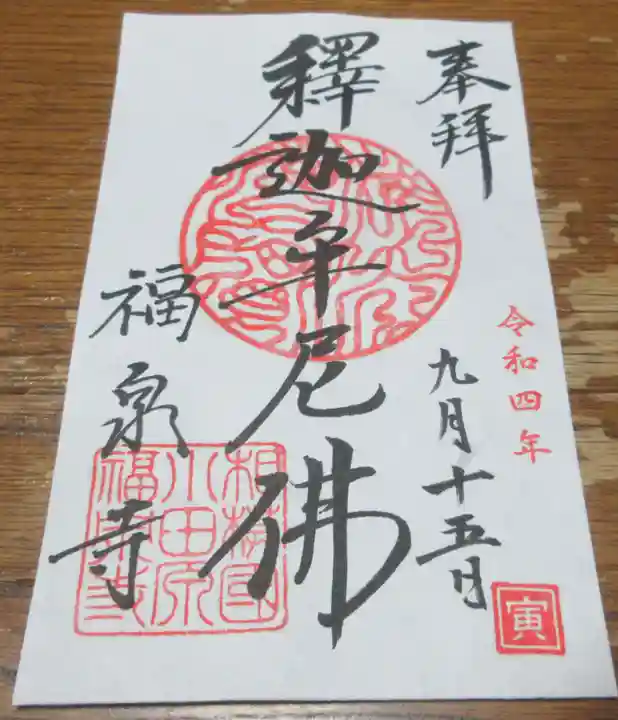 奉拜
令和四年
九月十五日
寅
釋迦牟尼佛
福泉寺
相模国
小田原